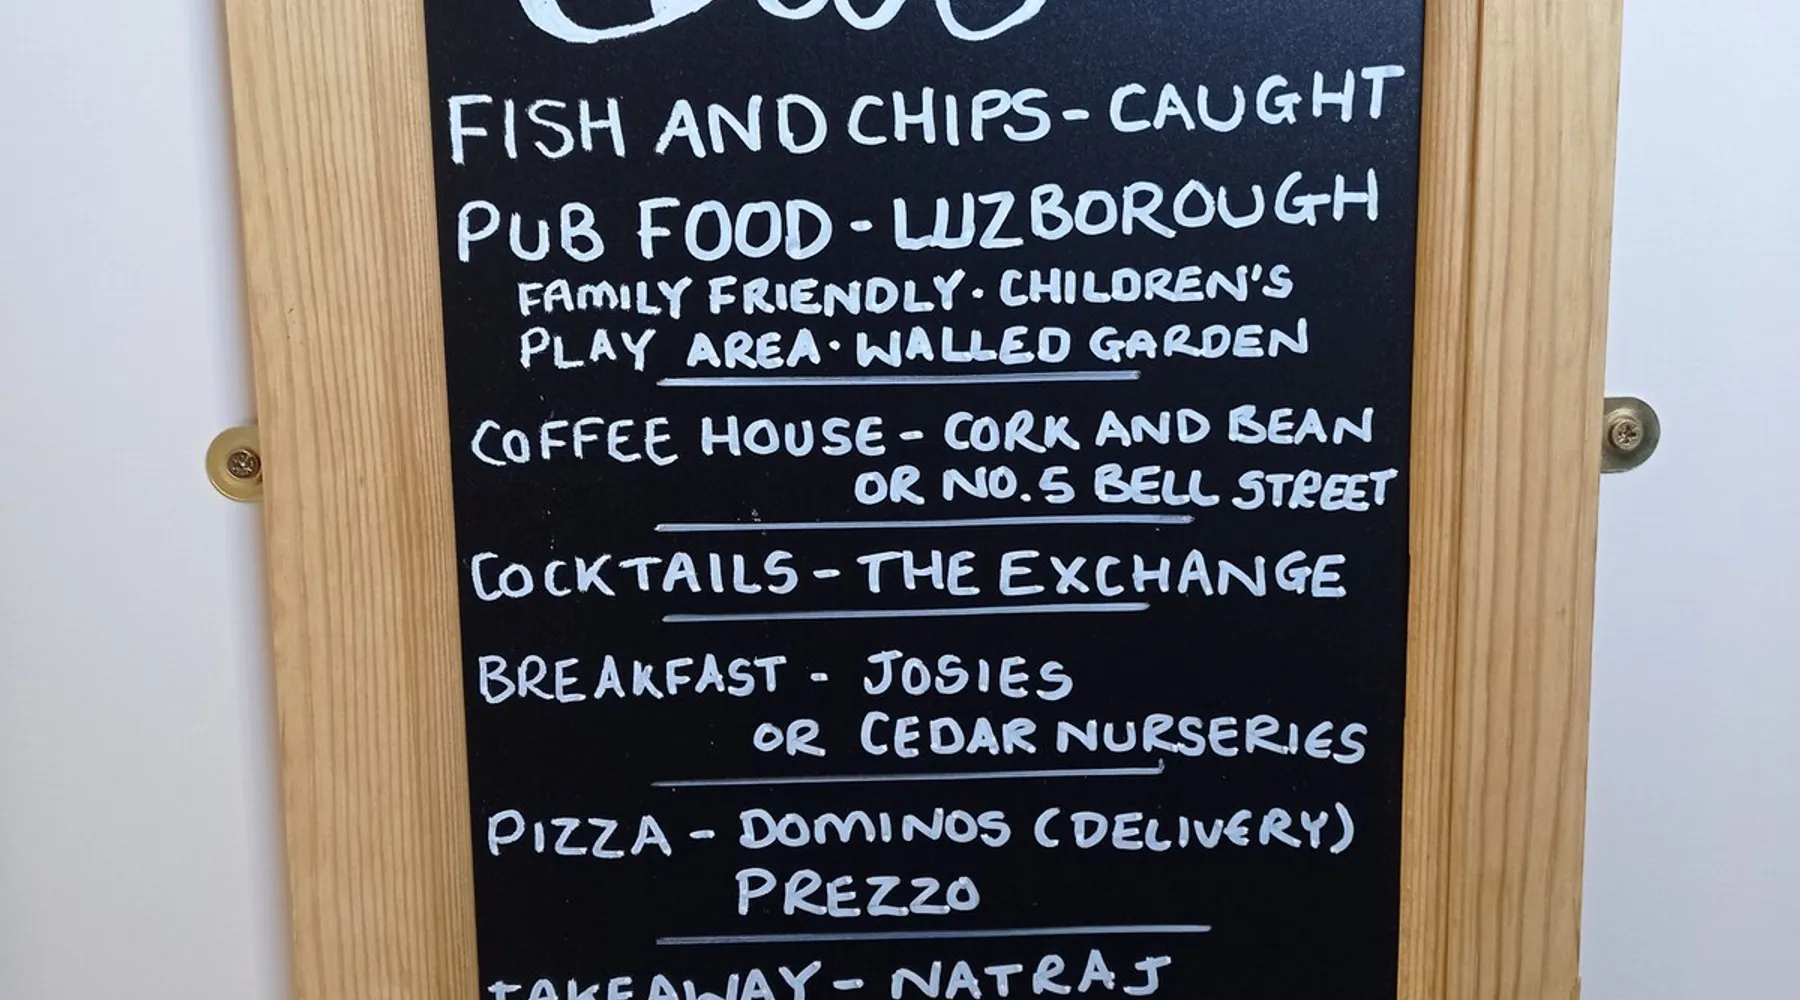 FISH AND CHIPS - CAUGHT
PUB FOOD - LUZBOROUGH
FAMILY FRIENDLY · CHILDREN'S
PLAY AREA · WALLED GARDEN
COFFEE HOUSE - CORK AND BEAN
OR NO.5 BELL STREET
COCKTAILS - THE EXCHANGE
BREAKFAST - JOSIES
OR CEDAR NURSERIES
PIZZA - DOMINOS (DELIVERY)
PREZZO
TAKEAWAY - NATRAJ